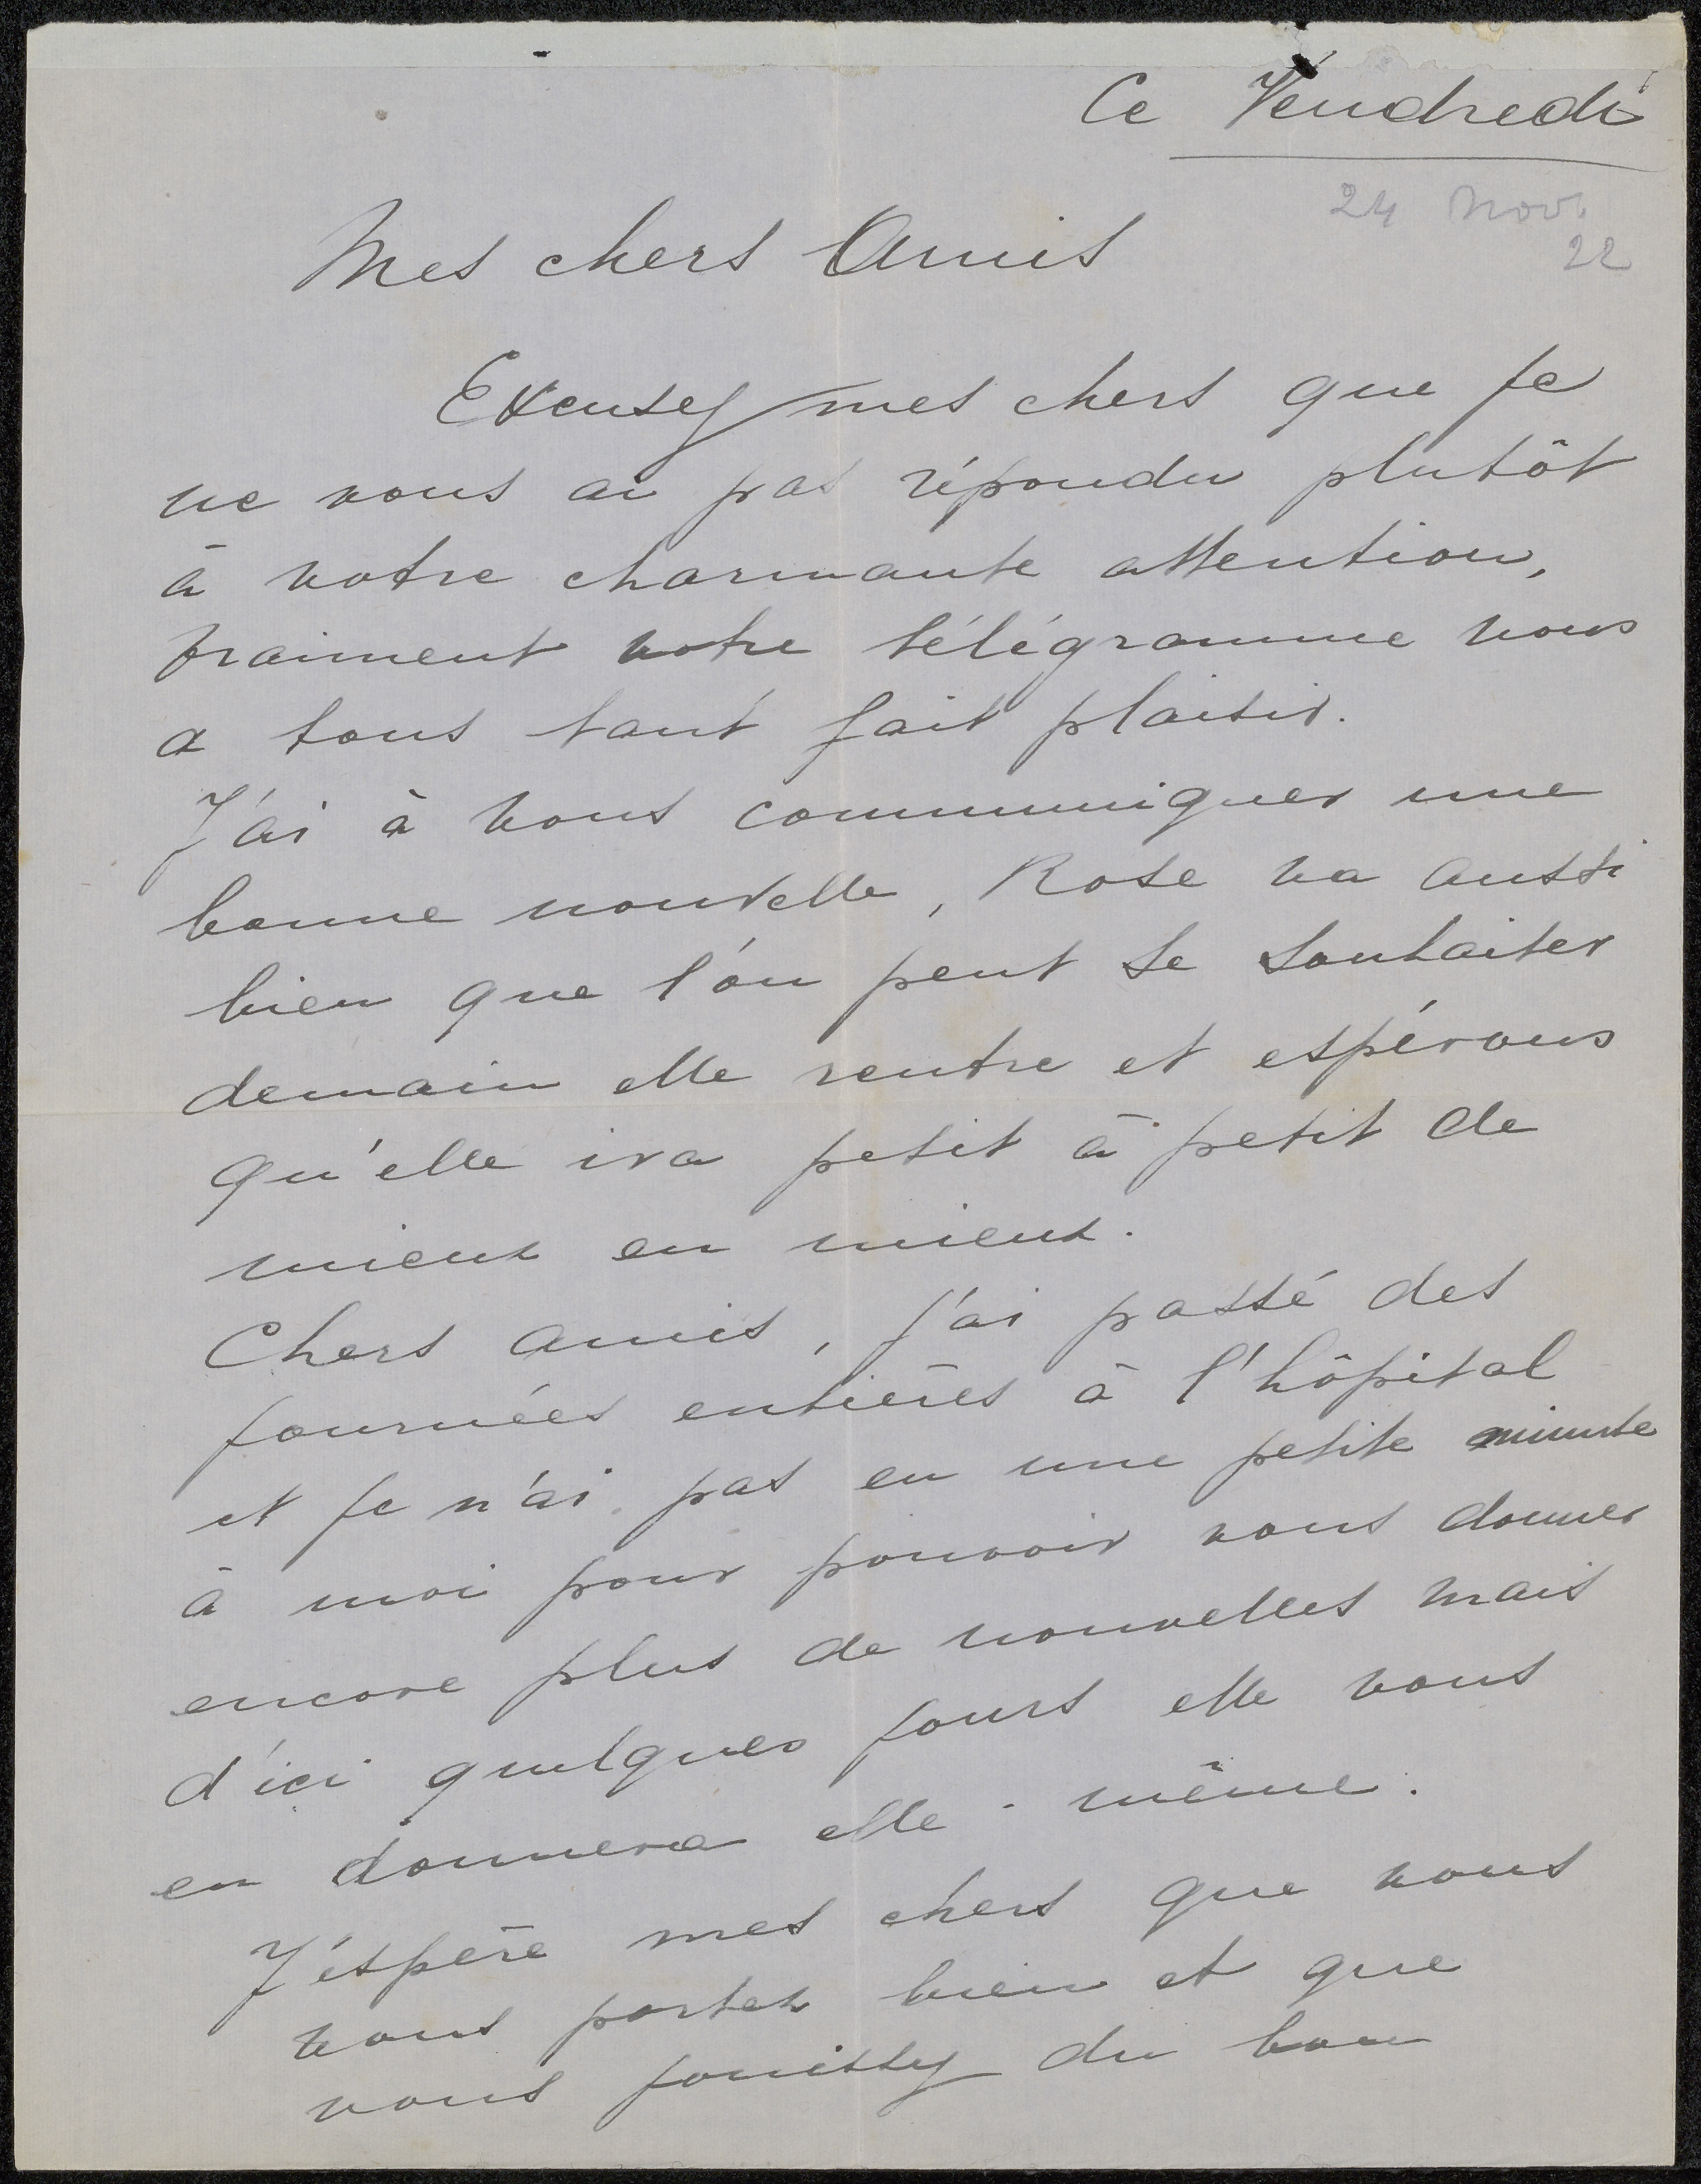 Ce Vendredi
24 Nov.
22
Mes chers Amis
Excusez mes chers que je
ne vous ai pas répondu plutôt
à votre charmante attention,
vraiment votre télégramme nous
a tous tant fait plaisir.
J'ai à vous communiquer une
bonne nouvelle, Rose va aussi
bien que l'on peut se souhaiter
demain elle rentre et espérons
qu'elle ira petit à petit de
mieux en mieux.
Chers amis, j'ai passé des
journées entières à l'hôpital
et je n'ai pas eu une petite minute
à moi pour pouvoir vous donner
encore plus de nouvelles mais
d'ici quelques jours elle vous
en donnera elle-même.
J'éspère mes chers que vous
vous portez bien et que
vous jouissez du bon